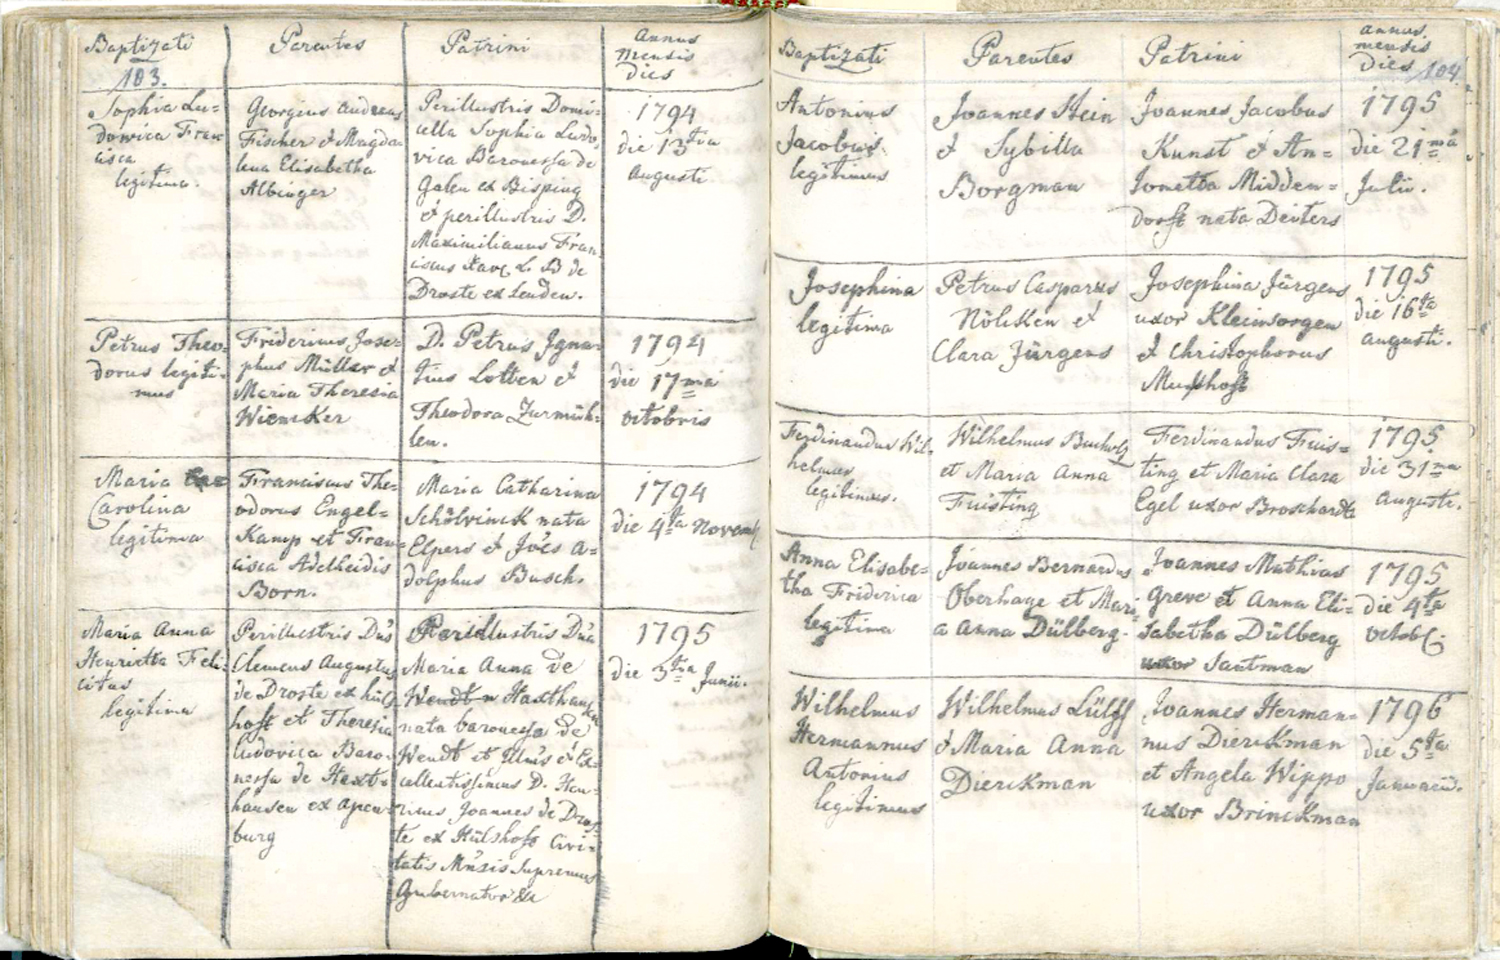 Baptizati
103.
Parentes
Patrini
Annus
Mensis
Dies
Sophia Lu=
dowica Fran
cisca
legitima.
Georgius Andreas
Fischer & Magda
lena Elisabetha
Albinger
Perillustris Domi=
cella Sophia Ludo
vica Baronessa de
Galen ex Bisping
& perillustris D.
Maximilianus Fran=
ciscus Xav. L. B de
Droste ex Senden.
1794
die 13tia
Augusti
Petrus Theo=
dorus legiti=
mus
Fridericus Jose=
phus Müller &
Maria Theresia
Wiencker
D. Petrus Igna=
tius Lotten &
Theodora Zurmüh=
len.
1794
die 17ma
octobris
Maria
Carolina
legitima
Franciscus The=
odorus Engel=
Kamp et Fran=
cisca Adelheidis
Born.
Maria Catharina
Schölvinck nata
Elpers & Joês A=
dolphus Busch.
1794
die 4ta Novemb.
Maria Anna
Henrietta Feli=
citas
legitima
Perillustris Dûs
Clemens Augustus
de Droste ex hüls
hoff et Theresia
ludovica Baro=
nessa de Haxt=
hausen ex Apen=
burg
Perillustris Dna
Maria Anna de
Wendt n Haxthausen
nata baronessa de
Wendt et Illmûs & Ex=
cellentissimus D. Hen=
ricus Joannes de Dros=
te ex Hülshoff Civi=
tatis Mñsis Supremus
Gubernator &c
1795
die 3tia Junii.
Baptizati
Parentes
Patrini
annus
mensis
dies
104
Antonius
Jacobus
legitimus
Joannes Stein
& Sybilla
Borgman
Joannes Jacobus
Kunst & An=
tonetta Midden=
dorff nata Deiters
1795
die 21ma
Julii.
Josephina
legitima
Petrus Casparus
Nölcken &
Clara Jürgens
Josephina Jürgens
uxor Kleinsorgen
& Christophorus
Musshoff
1795
die 16ta
augusti.
Ferdinandus Wil=
helmus
legitimus.
Wilhelmus Bucholz
et Maria Anna
Fuisting
Ferdinandus Fuis=
ting et Maria Clara
Egel uxor Broschardt
1795
die 31ma
Augusti.
Anna Elisabe=
tha Friderica
legitima
Joannes Bernardus
Oberhage et Mari
a Anna Dülberg.
Joannes Mathias
Greve et Anna Eli=
sabetha Dülberg
uxor Santman
1795
die 4ta
octob.
Wilhelmus
Hermannus
Antonius
legitimus
Wilhelmus Lülff
& Maria Anna
Dierckman
Joannes Herman=
nus Dierckman
et Angela Wippo
uxor Brinckman
1796
die 5ta
Januarii.